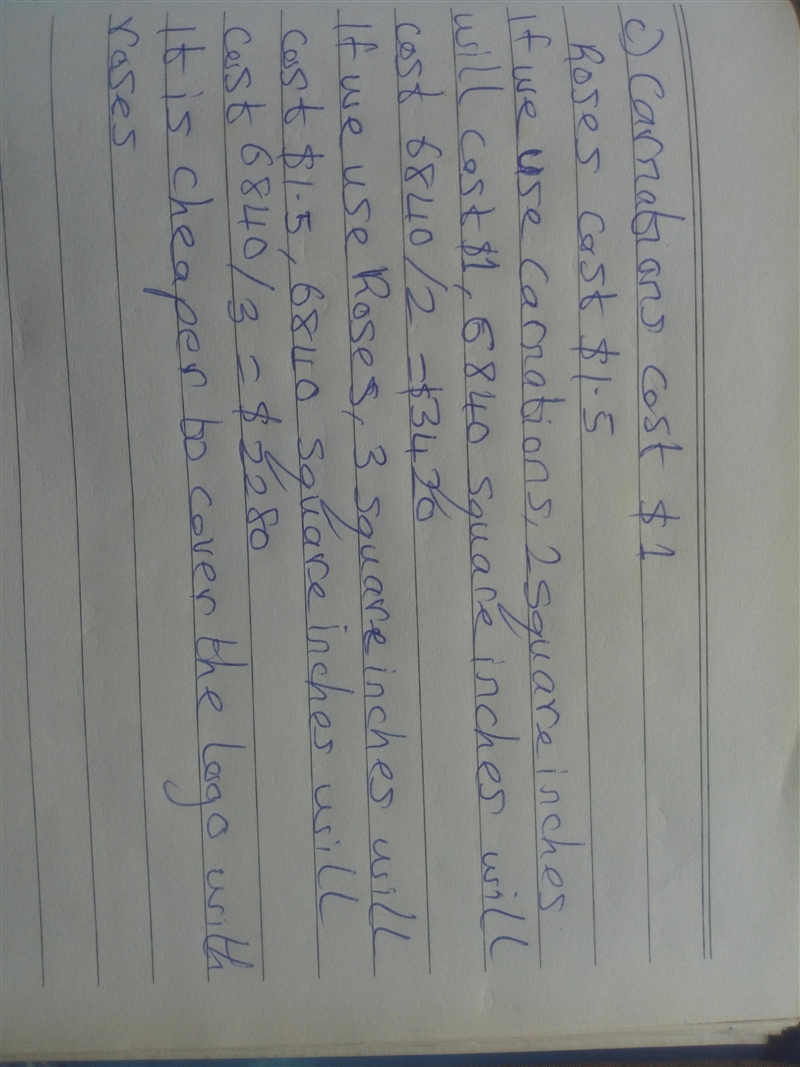 c) Carnations cost $1
Roses cost $1.5
If we use carnations, 2 square inches
will cost $1, 6840 square inches will
cost 6840/2 = $3420
If we use Roses, 3 square inches will
cost $1.5, 6840 square inches will
cost 6840/3 = $2280
It is cheaper to cover the logo with
roses